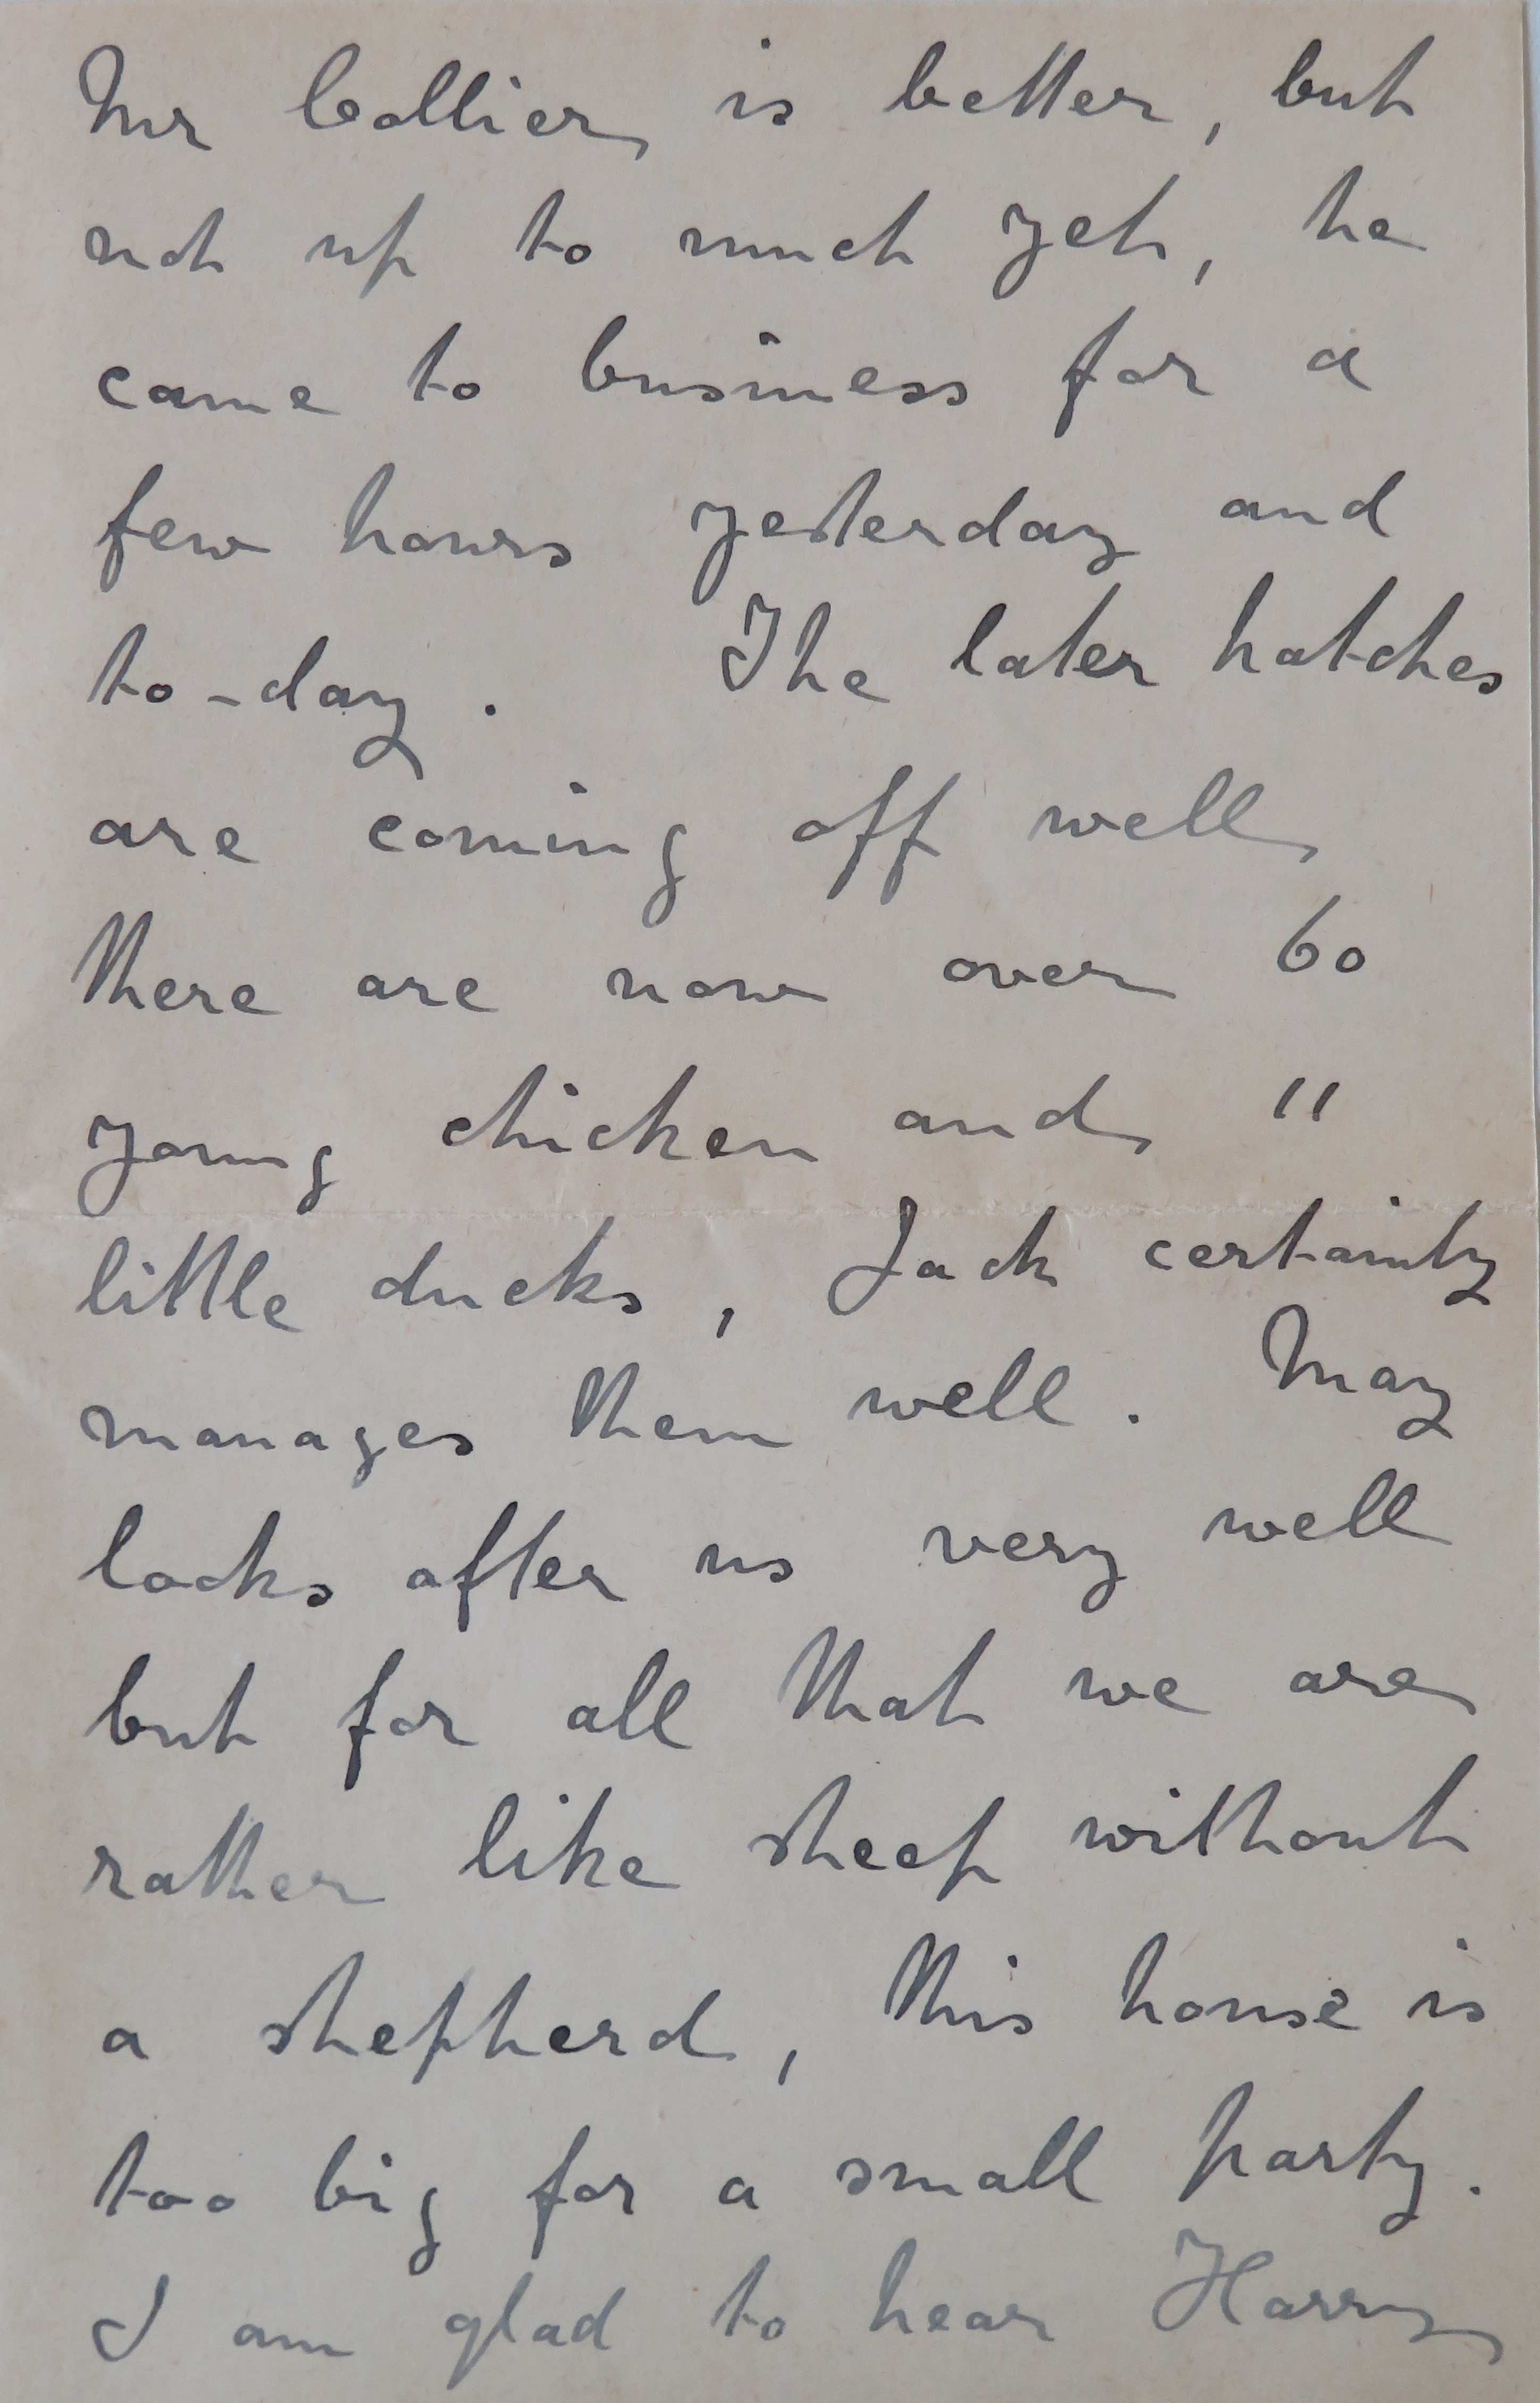 Mr Collier is better, but
not up to much yet, he
came to business for a
few hours yesterday and
to-day. The later hatches
are coming off well
there are now over 60
young chicken and 11
little ducks, Jack certainly
manages them well. May
looks after us very well
but for all that we are
rather like sheep without
a shepherd, this house is
too big for a small party.
I am glad to hear Harry